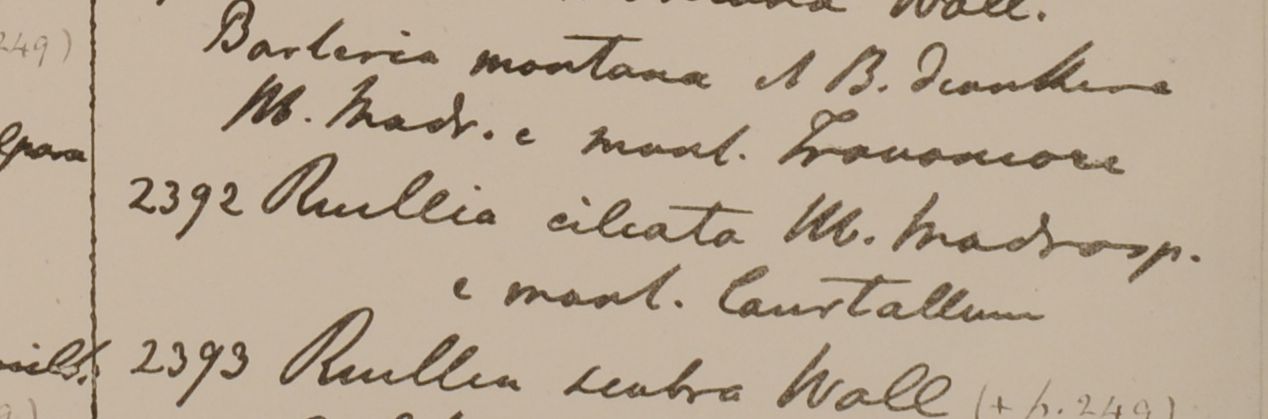 249)
Wall.
Barleria montana et B.
M. Madr. e mont. Travancore
2392 Ruellia ciliata M. Madrasp.
e mont. Courtallum
2393 Ruellia scabra Wall (+ p. 249)